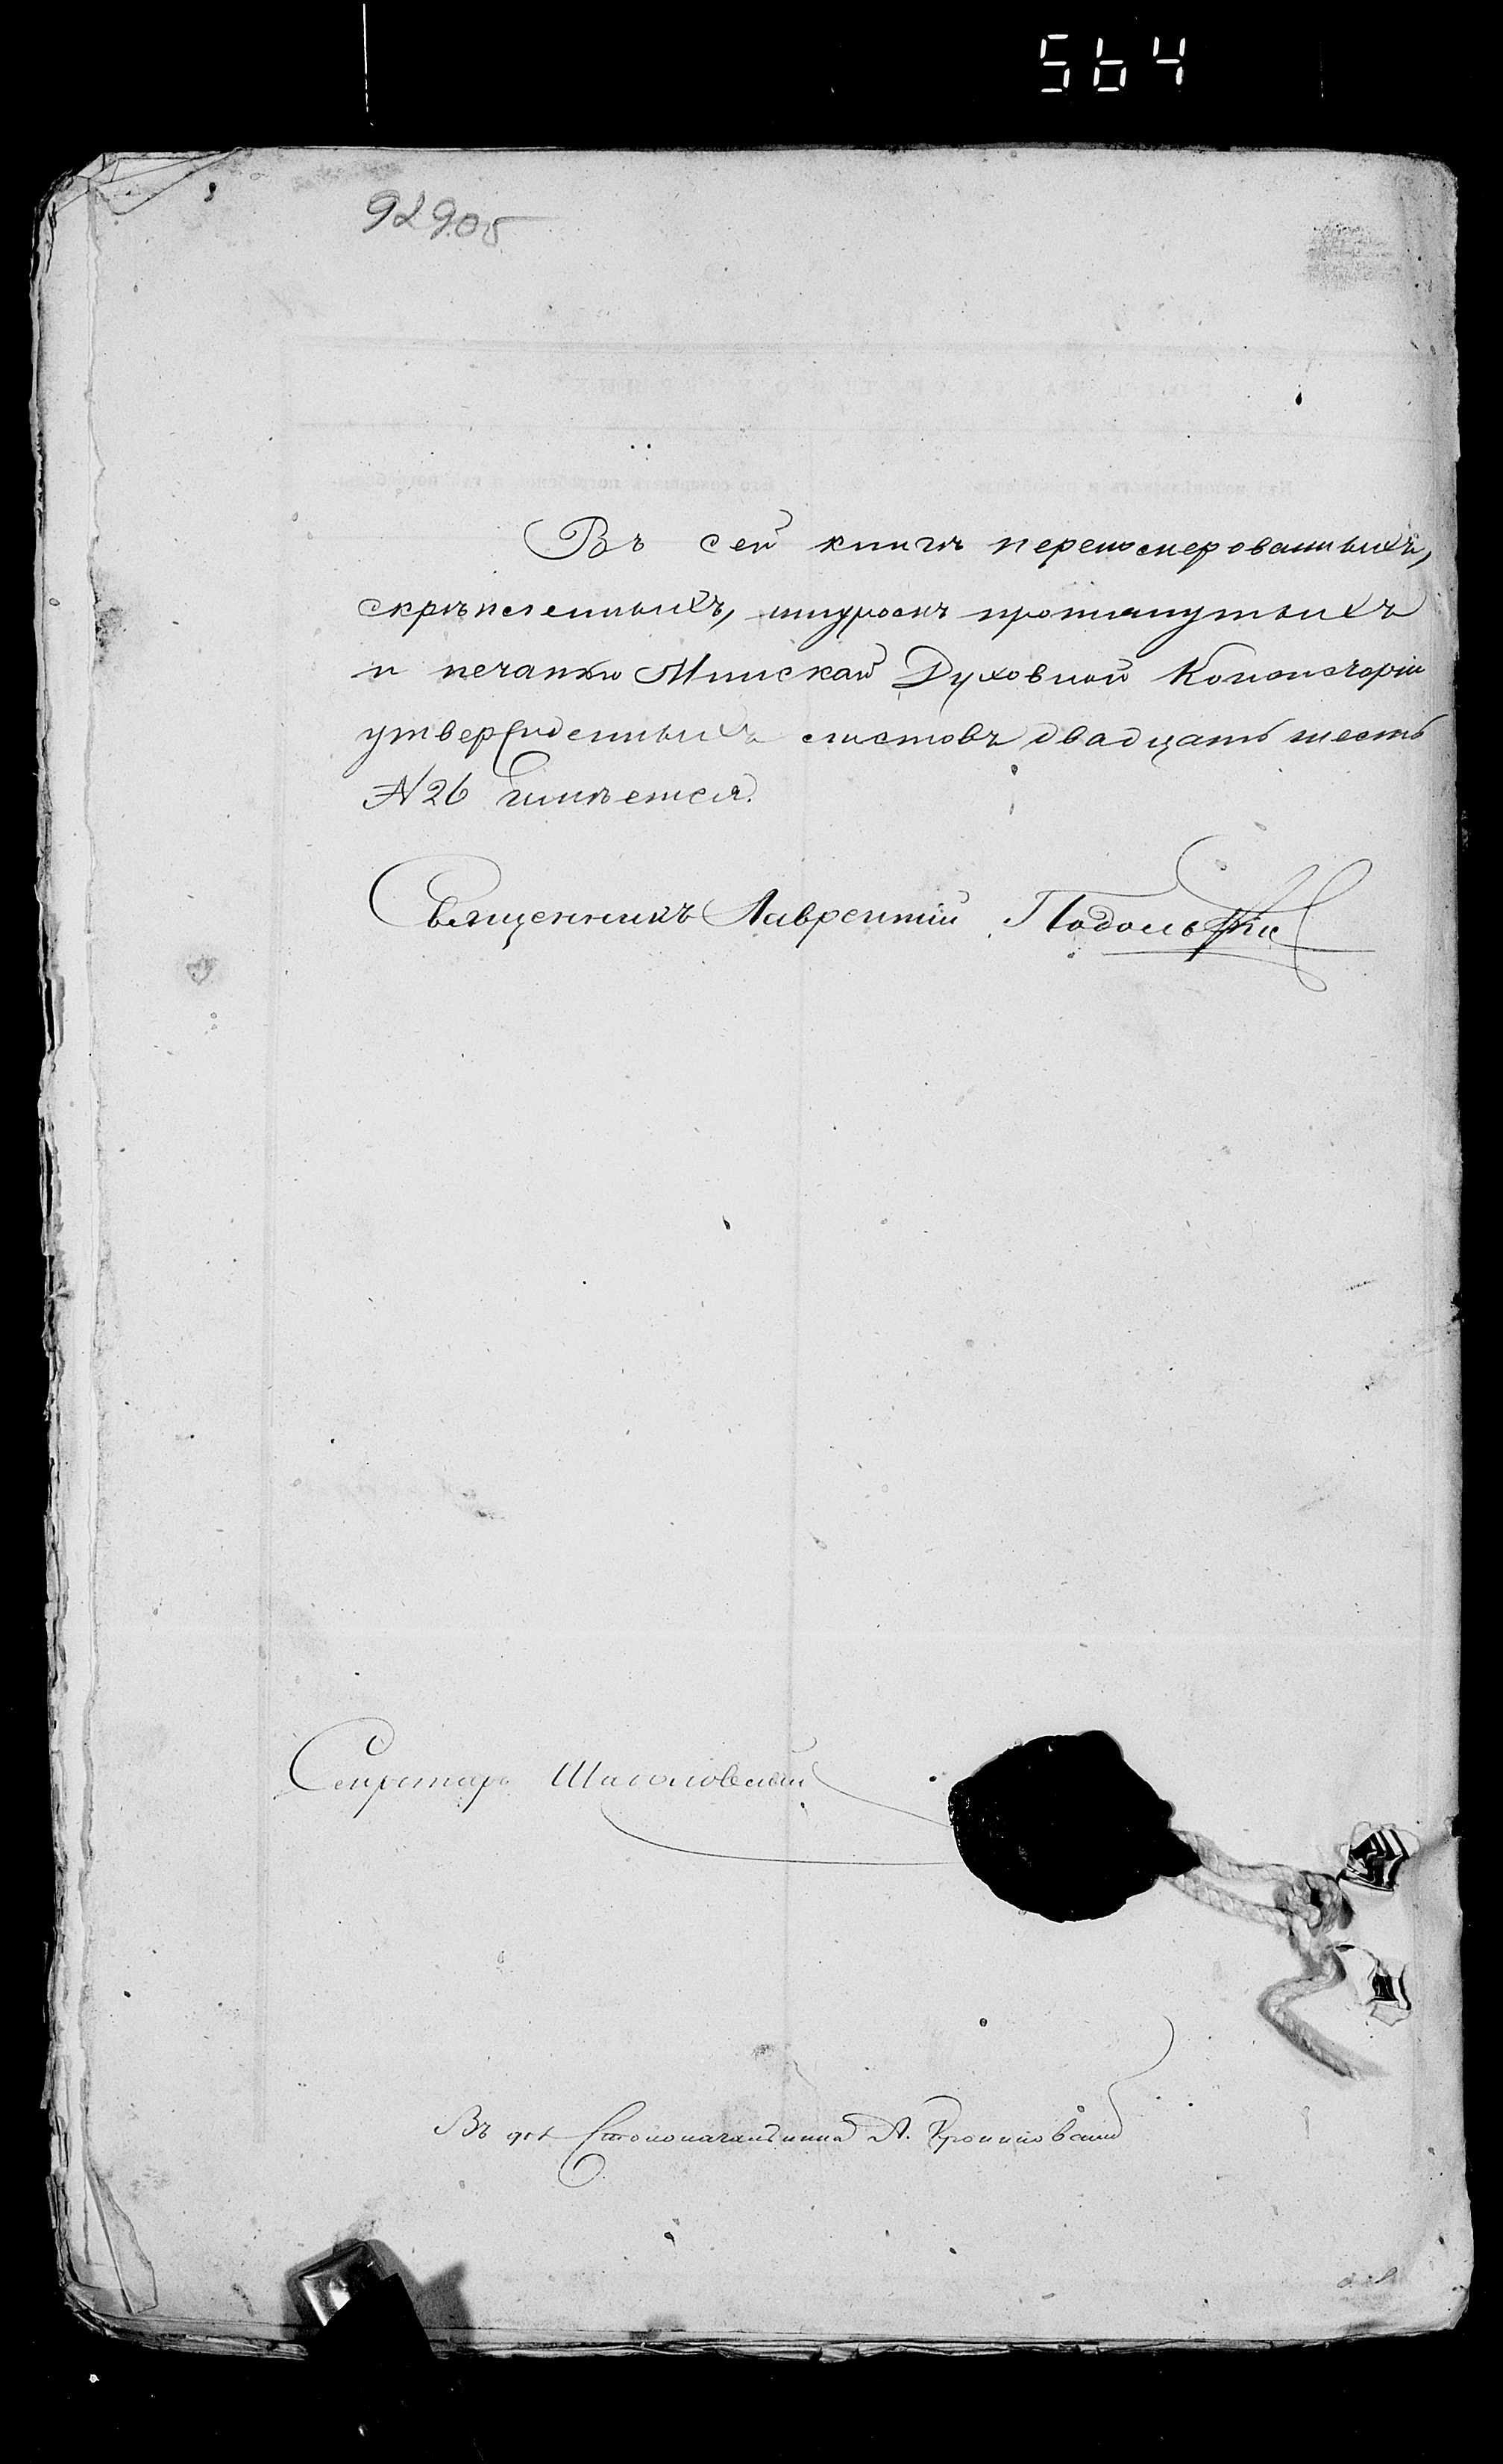 564
929.05
Въ сей книгѣ перенумерованныхъ,
скрѣпленныхъ, шнуромъ протянутыхъ
и печатью Минской Духовной Консисторіи
утвержденныхъ листовъ двадцать шесть
№ 26 имѣется.
Священникъ Лаврентій Подольскій
Секретарь
Въ дол. Столоначальника А.